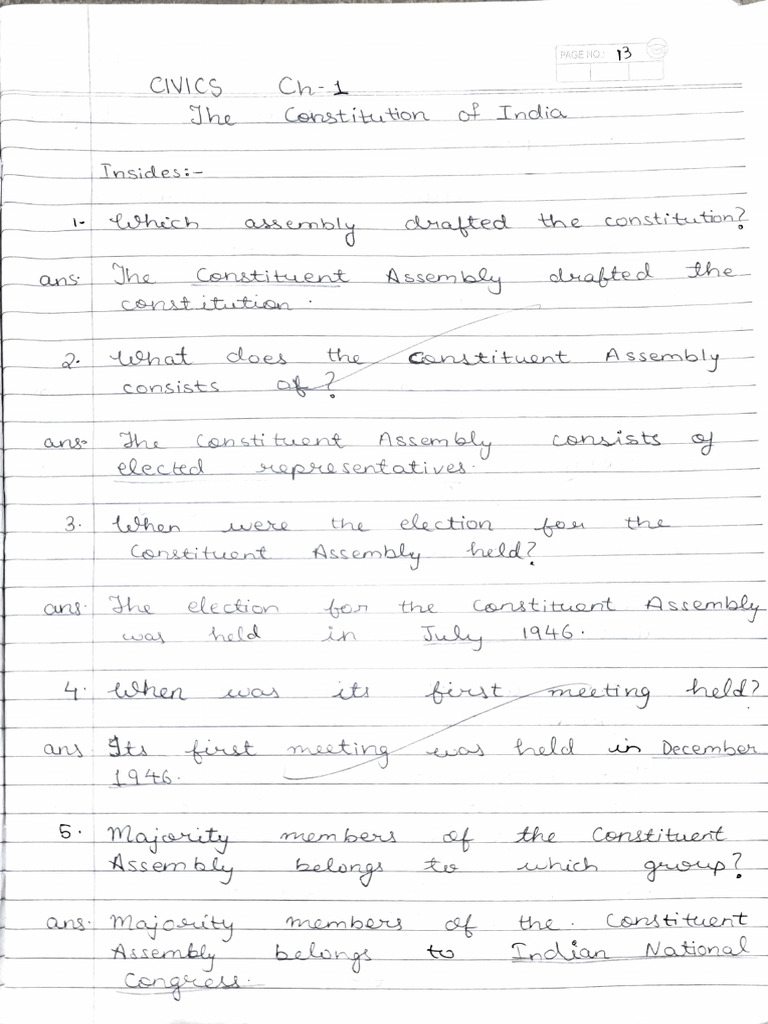 PAGE NO.: 13
CIVICS Ch-1
The Constitution of India
Insides:-
1- Which assembly drafted the constitution?
ans. The Constituent Assembly drafted the
constitution.
2. What does the Constituent Assembly
consists of?
ans- The Constituent Assembly consists of
elected representatives.
3. When were the election for the
Constituent Assembly held?
ans. The election for the Constituent Assembly
was held in July 1946.
4. When was its first meeting held?
ans Its first meeting was held in December
1946.
5. Majority members of the Constituent
Assembly belongs to which group?
ans. Majority members of the Constituent
Assembly belongs to Indian National
Congress.